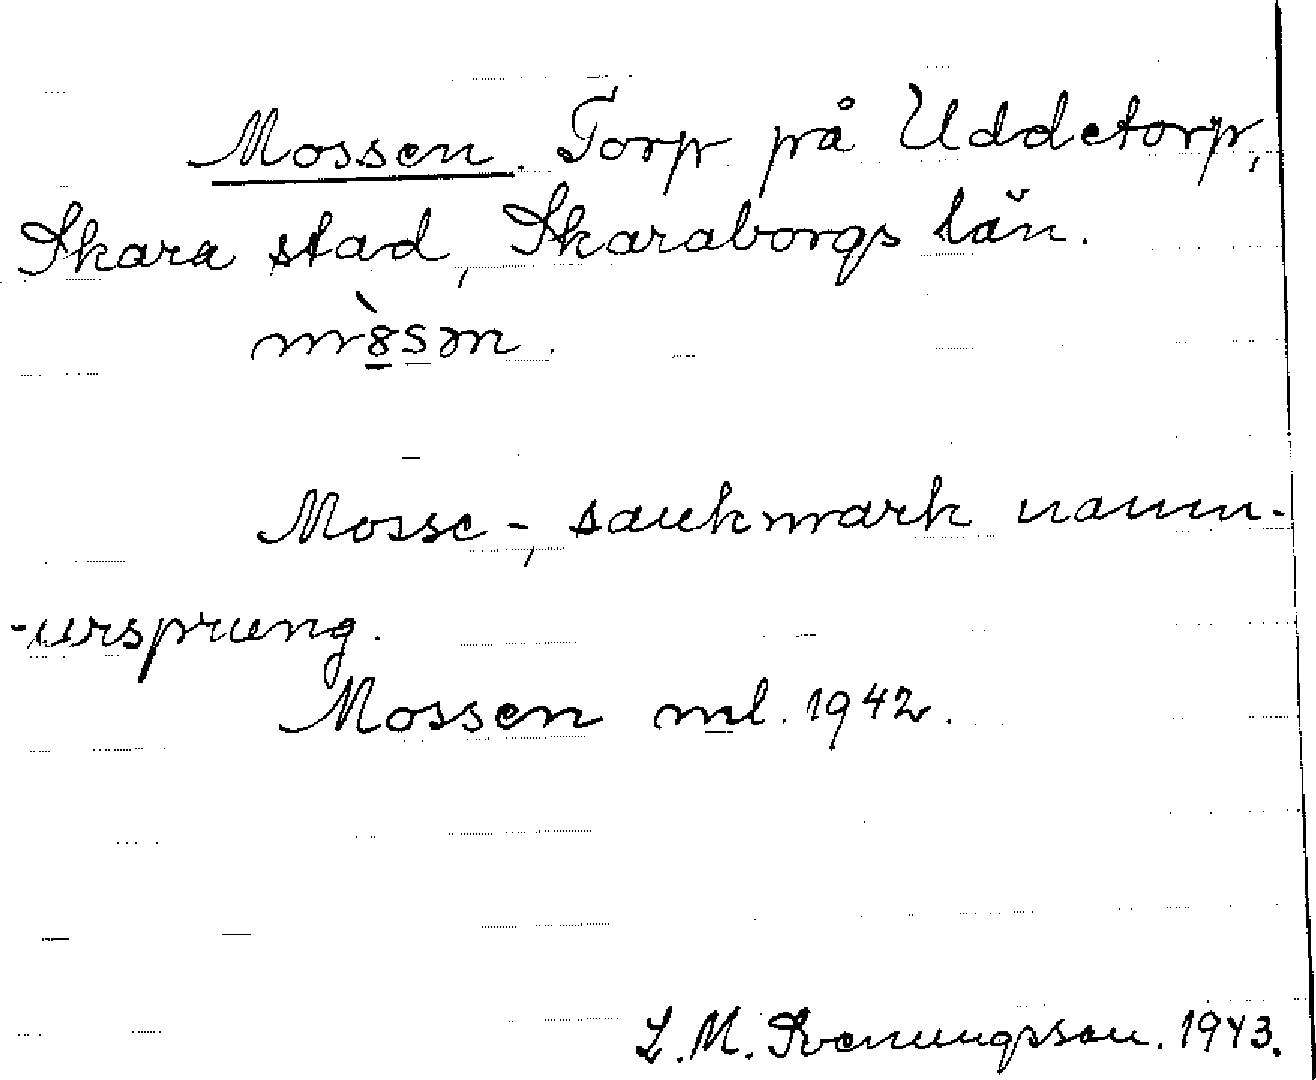 Mossen. Torp på Uddetorp,
Skara stad, Skaraborgs län.
mò̱sən.
Mosse-, sankmark namn-
-ursprung.
Mossen ml. 1942.
L. M. Svenungsson. 1943.